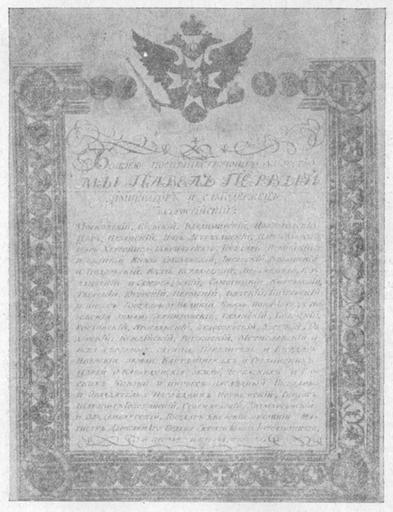 Божиею поспѣшествующею милостию
МЫ ПАВЕЛЪ ПЕРВЫЙ
Императоръ и Самодержецъ
Всероссийский:
Московский, Киевский, Владимирский, Новгородский,
Царь Казанский, Царь Астраханский, Царь Сибирский,
Царь Херсониса-Таврическаго, Государь Псковский
и Великий Князь Смоленский, Литовский, Волынский
и Подольский, Князь Эстляндский, Лифляндский, Кур-
ляндский и Семигальский, Самогитский, Корельский,
Тверский, Югорский, Пермский, Вятский, Болгарский
и иныхъ; Государь и Великий Князь Новагорода Ни-
зовския земли, Черниговский, Рязанский, Полоцкий,
Ростовский, Ярославский, Белоозерский, Удорский, Об-
дорский, Кондийский, Витепский, Мстиславский и
всея Северныя страны Повелитель и Государь
Иверския земли, Карталинскихъ и Грузинскихъ
Царей и Кабардинския земли, Черкаскихъ и Гор-
скихъ Князей и иныхъ Наследный Государь
и Обладатель; Наследникъ Норвежский, Герцогъ
Шлезвигъ-Голстинский, Стормарнский, Дитмарсенский
и Олденбургский, Государь Еверский и Великий Маги-
стръ Державнаго Ордена Святаго Иоанна Иерусалимскаго,
и прочая, и прочая, и прочая.